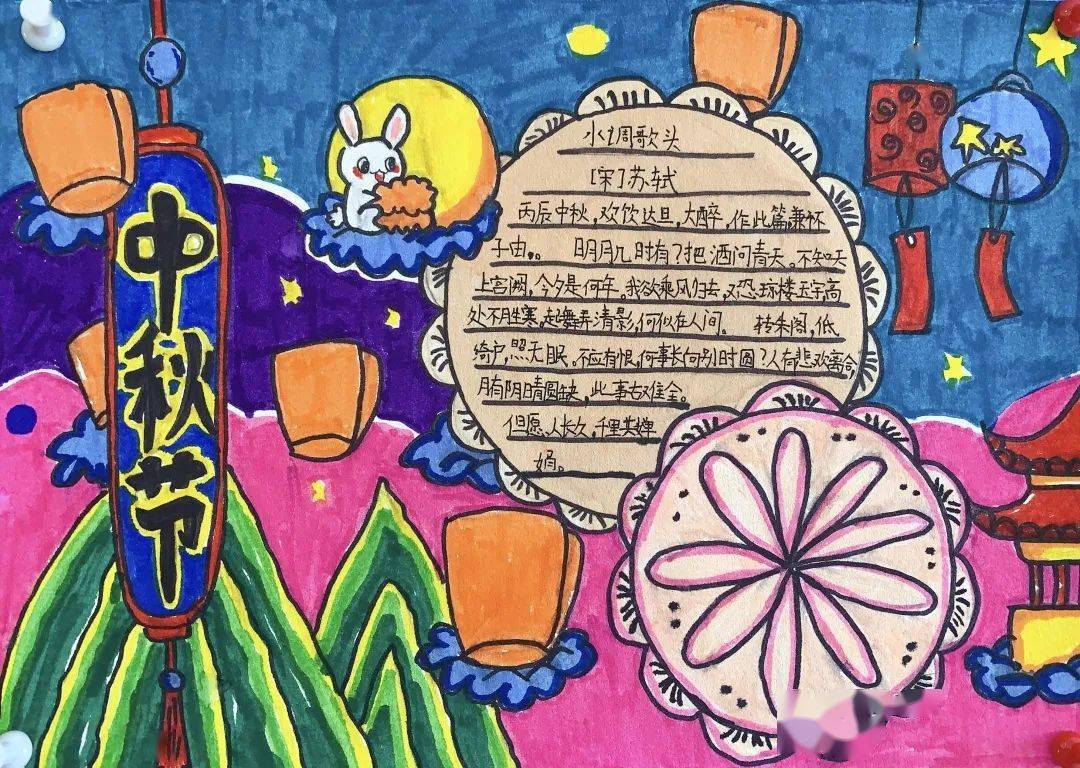 中秋节
水调歌头
[宋]苏轼
丙辰中秋,欢饮达旦,大醉,作此篇,兼怀
子由。 明月几时有?把酒问青天。不知天
上宫阙,今夕是何年。我欲乘风归去,又恐琼楼玉宇,高
处不胜寒,起舞弄清影,何似在人间。 转朱阁,低
绮户,照无眠。不应有恨,何事长向别时圆?人有悲欢离合,
月有阴晴圆缺,此事古难全。
但愿人长久,千里共婵
娟。